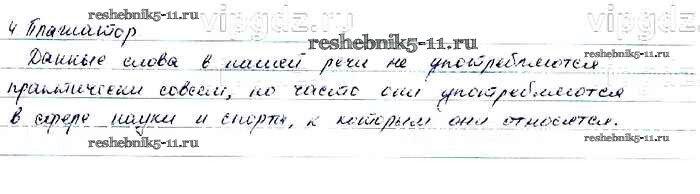 reshebnik5-11.ru
vipgdz
4 Плагиатор
reshebnik5-11.ru
Данные слова в нашей речи не употребляются
практически совсем, но часто они употребляются
reshebnik5-11.ru
в сфере науки и спорта, к которым они относятся.
reshebnik5-11.ru